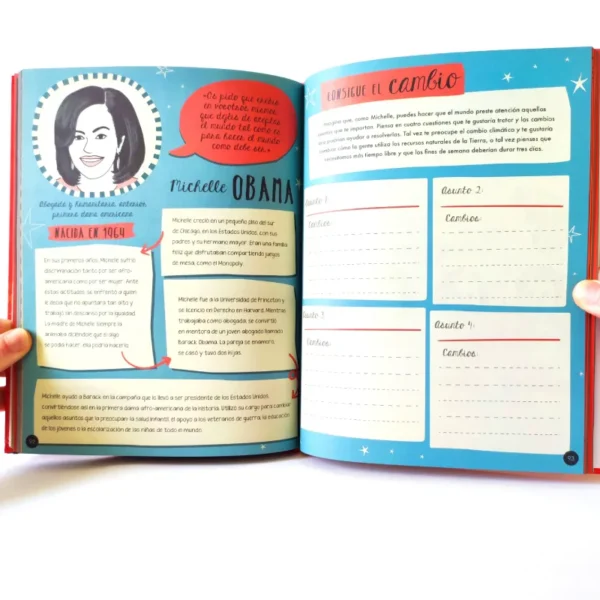 «Os pido que entréis
en vosotras mismas,
que dejéis de aceptar
el mundo tal como es
para hacer el mundo
como debe ser.»
Michelle OBAMA
Abogada y humanitaria, anterior
primera dama americana
NACIDA EN 1964
En sus primeros años, Michelle sufrió
discriminación tanto por ser afro-
americana como por ser mujer. Ante
estas actitudes, se enfrentó a quien
le decía que no apuntara tan alto y
trabajó sin descanso por la igualdad.
La madre de Michelle siempre la
animaba diciendo que si algo
se podía hacer, ella podría hacerlo.
Michelle creció en un pequeño piso del sur
de Chicago, en los Estados Unidos, con sus
padres y su hermano mayor. Eran una familia
feliz que disfrutaban compartiendo juegos
de mesa, como el Monopoly.
Michelle fue a la Universidad de Princeton y
se licenció en Derecho en Harvard. Mientras
trabajaba como abogada, se convirtió
en mentora de un joven abogado llamado
Barack Obama. La pareja se enamoró,
se casó y tuvo dos hijas.
Michelle ayudó a Barack en la campaña que lo llevó a ser presidente de los Estados Unidos,
convirtiéndose así en la primera dama afro-americana de la historia. Utilizó su cargo para cambiar
aquellos asuntos que la preocupaban: la salud infantil, el apoyo a los veteranos de guerra, la educación
de los jóvenes o la escolarización de las niñas de todo el mundo.
CONSIGUE EL cambio
Imagina que, como Michelle, puedes hacer que el mundo preste atención a aquellos
asuntos que te importan. Piensa en cuatro cuestiones que te gustaría tratar y los cambios
que podrían ayudar a resolverlas. Tal vez te preocupe el cambio climático y te gustaría
cambiar cómo la gente utiliza los recursos naturales de la Tierra, o tal vez pienses que
necesitamos más tiempo libre y que los fines de semana deberían durar tres días.
Asunto 1:
Cambios:
Asunto 2:
Cambios:
Asunto 3:
Cambios:
Asunto 4:
Cambios:
93